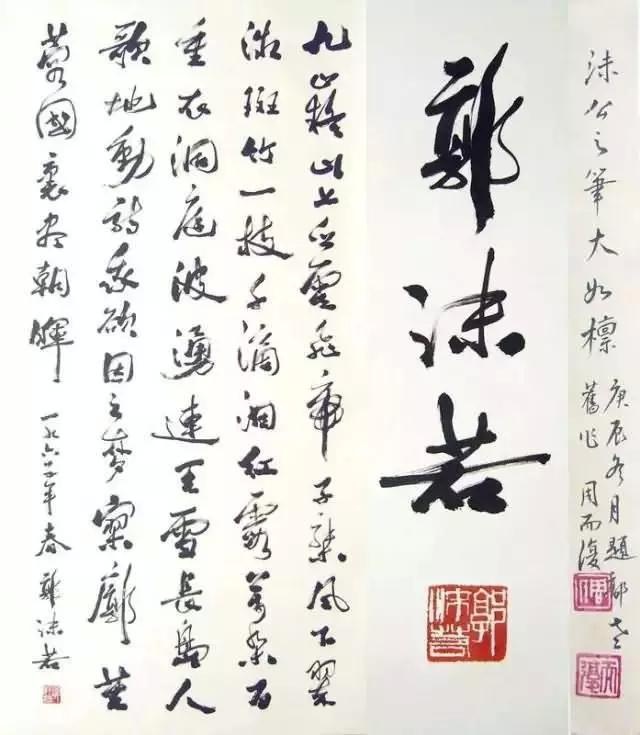 沫公之筆大如椽
庚辰冬月題郭老
舊作 周而復
郭沫若
郭沫若
九嶷山上白雲飛帝子乘風下翠
微斑竹一枝千滴泪紅霞萬朵百
重衣洞庭波湧連天雪長島人
歌地動詩我欲因之夢寥廓芙
蓉國裏盡朝暉 一九六五年春 郭沫若